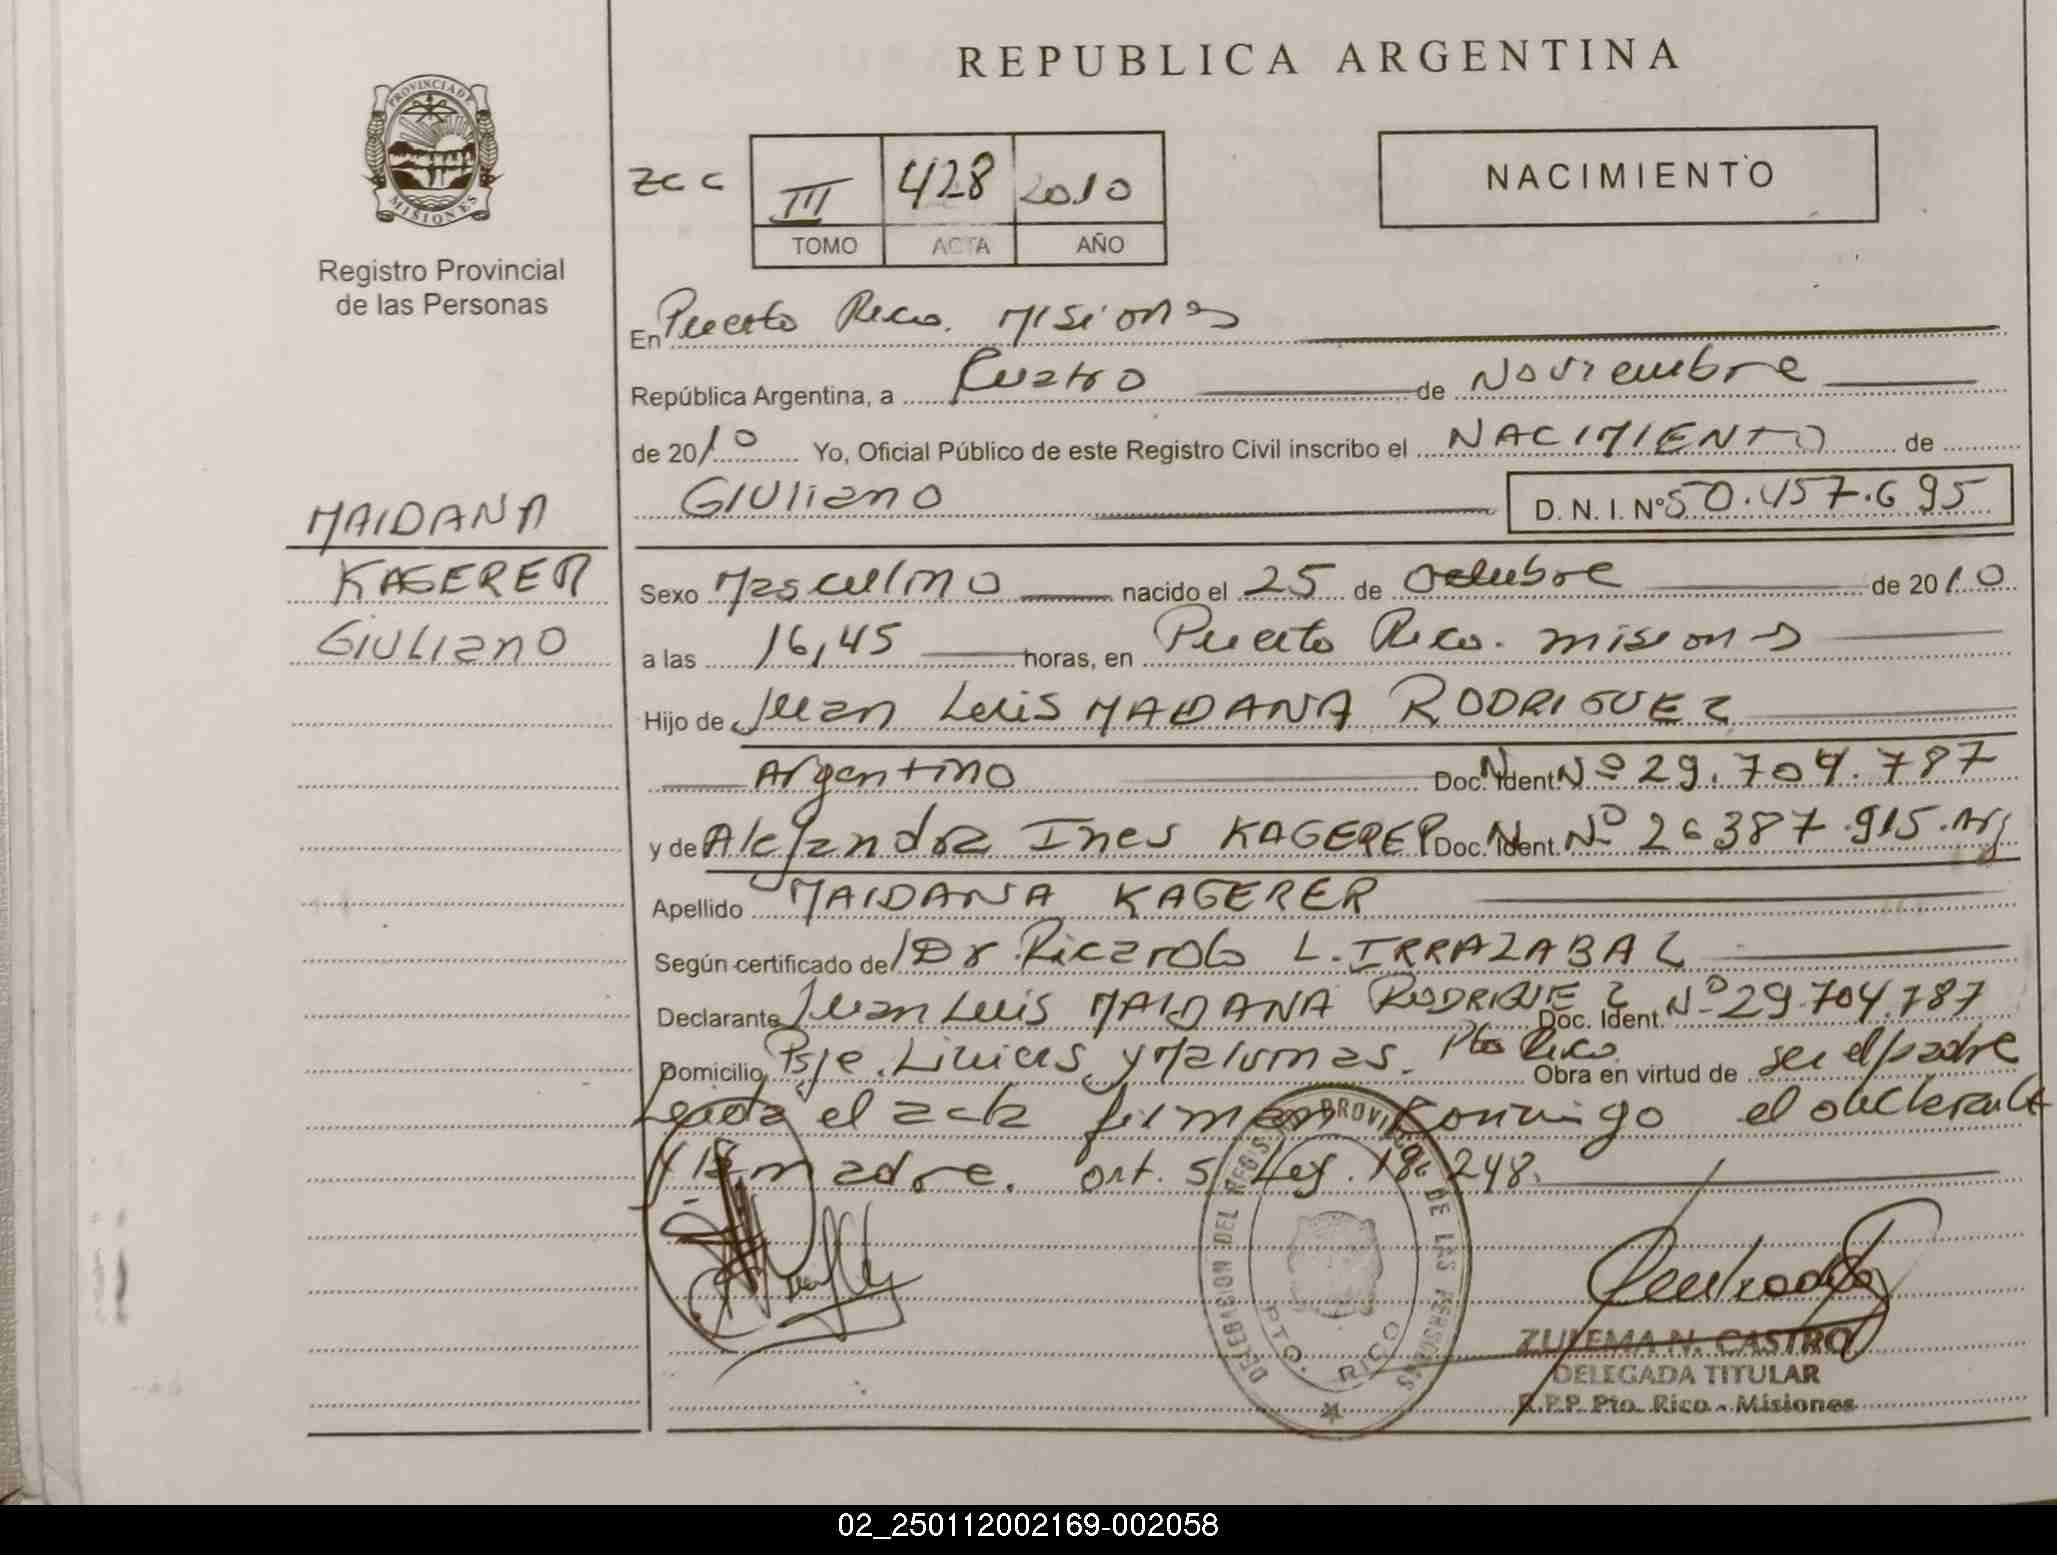 REPUBLICA ARGENTINA
PROVINCIA DE
MISIONES
Registro Provincial
de las Personas
ZCC
III 428 2010
TOMO ACTA AÑO
NACIMIENTO
En Puerto Rico. Misiones
República Argentina, a Cuatro de Noviembre
de 2010 Yo, Oficial Público de este Registro Civil inscribo el NACIMIENTO de
Giuliano D. N. I. Nº 50.457.695
MAIDANA
KAGERER
Giuliano
Sexo Masculino nacido el 25 de Octubre de 2010
a las 16,45 horas, en Puerto Rico. misiones
Hijo de Juan Luis MAIDANA RODRIGUEZ
Argentino Doc. Ident. Nº 29.704.787
y de Alejandra Ines KAGERER Doc. Ident. Nº 26387.915.Arg
Apellido MAIDANA KAGERER
Según certificado de Dr. Ricardo L. IRRAZABAL
Declarante Juan Luis MAIDANA RODRIGUEZ Doc. Ident. Nº 29.704.787
Domicilio Psje. y Malvinas. Pto Rico Obra en virtud de ser el padre
Leida el acta firman conmigo el declarante
y la madre. art. 5 Ley. 18.248.
DELEGACION DEL REGISTRO PROVINCIAL DE LAS PERSONAS
PTO. RICO
ZULEMA N. CASTRO
DELEGADA TITULAR
R.P.P. Pto. Rico - Misiones
02_250112002169-002058